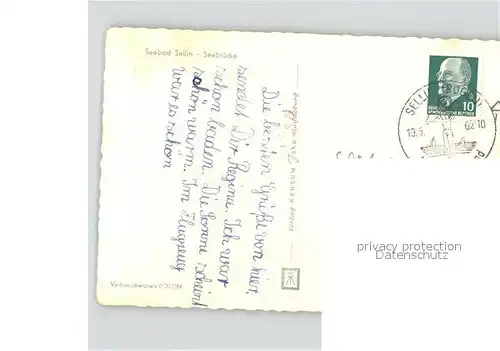 Seebad Sellin - Seebrücke
Die besten Grüße von hier,
sendet Dir Regina. Ich war
schon baden. Die Sonne scheint
schön warm. Im Flugzeug
war es schön
Verbraucherpreis 0,20 DM
10
DEMOKRATISCHE REPUBLIK
SELLIN
19.6.
62-10
privacy protection
Datenschutz